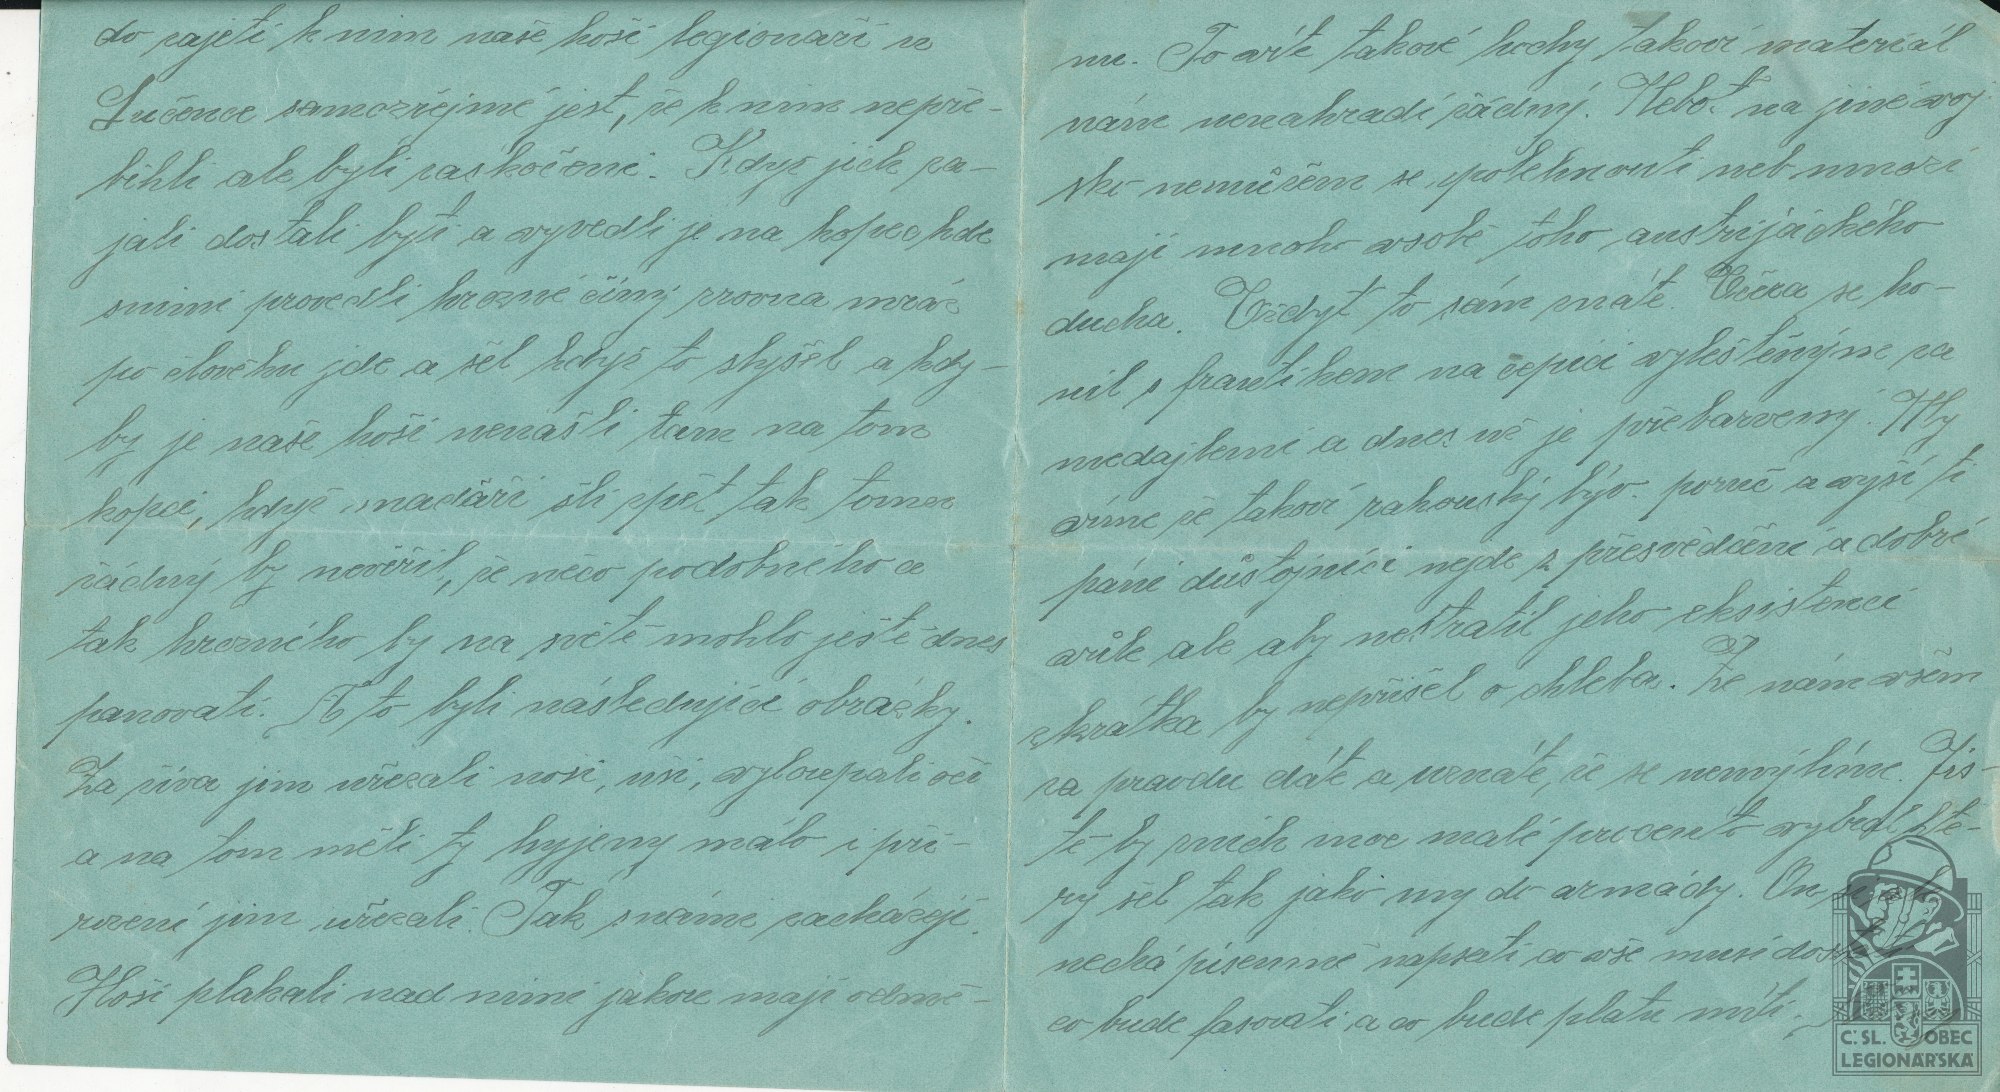 do zajetí k nim naše hoši legionaři u
Lučence samozřejmě jest, že k nim nepře-
bihli ale byli zaskočeni. Když jich za-
jali dostali byti a vyvedli je na kopec kde
snimi provedli hrozné činy zrovna mráz
po človéku jde a šel když to slyšel a kdy-
by je naše hoši nenašli tam na tom
kopci, když madaři šli zpět tak tomu
žádný by nevěřil, že něco podobného a
tak hrozného by na světě mohlo ještě dnes
panovati. A to byli následující obrázky.
Za živa jim uřezali nosi, uši, vyloupali oči
a na tom měli ty hyjeny málo i při-
rození jim uřezali. Tak snámi zacházejí.
Hoši plakali nad nimi jakou mají odmě-
nu. To víte takové hochy, takoví materiál
nám nenahradí žádný. Neboť na jiné voj
sko nemůžem se spolehnouti neb mnozí
mají mnoho vsobě toho austrijáckého
ducha. Vždyt to sám znáte. Včera se ho-
nil s frantíkem na čepici vyleštěným za
medajlemi a dnes už je přebarvený. My
víme že takoví rakouský býv. poruč a vyší ti
páni důstojníci nejde z přesvědčení a dobré
vůle ale aby nestratil jeho eksistenci
zkrátka by nepřišel o chleba. Že nám všem
za pravdu dáte a uznáte, že se nemýlíme. Jis-
tě by znich moc malé procento vybral kte-
rý šel tak jako my do armády. On si
nechá písemně napsati co vše musí dostat
co bude fasovati a co bude platu míti.
Č. SL. OBEC
LEGIONÁŘSKÁ